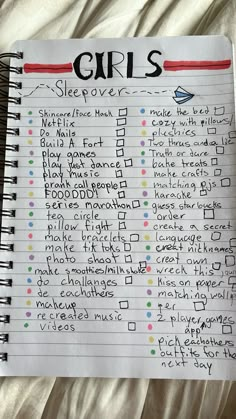 GIRLS
Sleepover
Skincare/Face Mask
Netflix
Do Nails
Build A Fort
play games
play just dance
play music
prank call people
FOOODDD!
series marathon
tea circle
pillow fight
make bracelets
make tik toks
photo shoot
make smoothies/milkshake
do challanges
do eachothers
makeup
recreated music
videos
make the bed
cozy with pillows/
plushies
Two thrus and a lie
Truth or dare
bake treats
make crafts
matching pjs
karaoke
guess starbucks
order
create a secret
language
creat nicknames
create own
wreck this
Kiss on paper
matching wall
per
2 player games
app
pick eachothers
outfits for the
next day